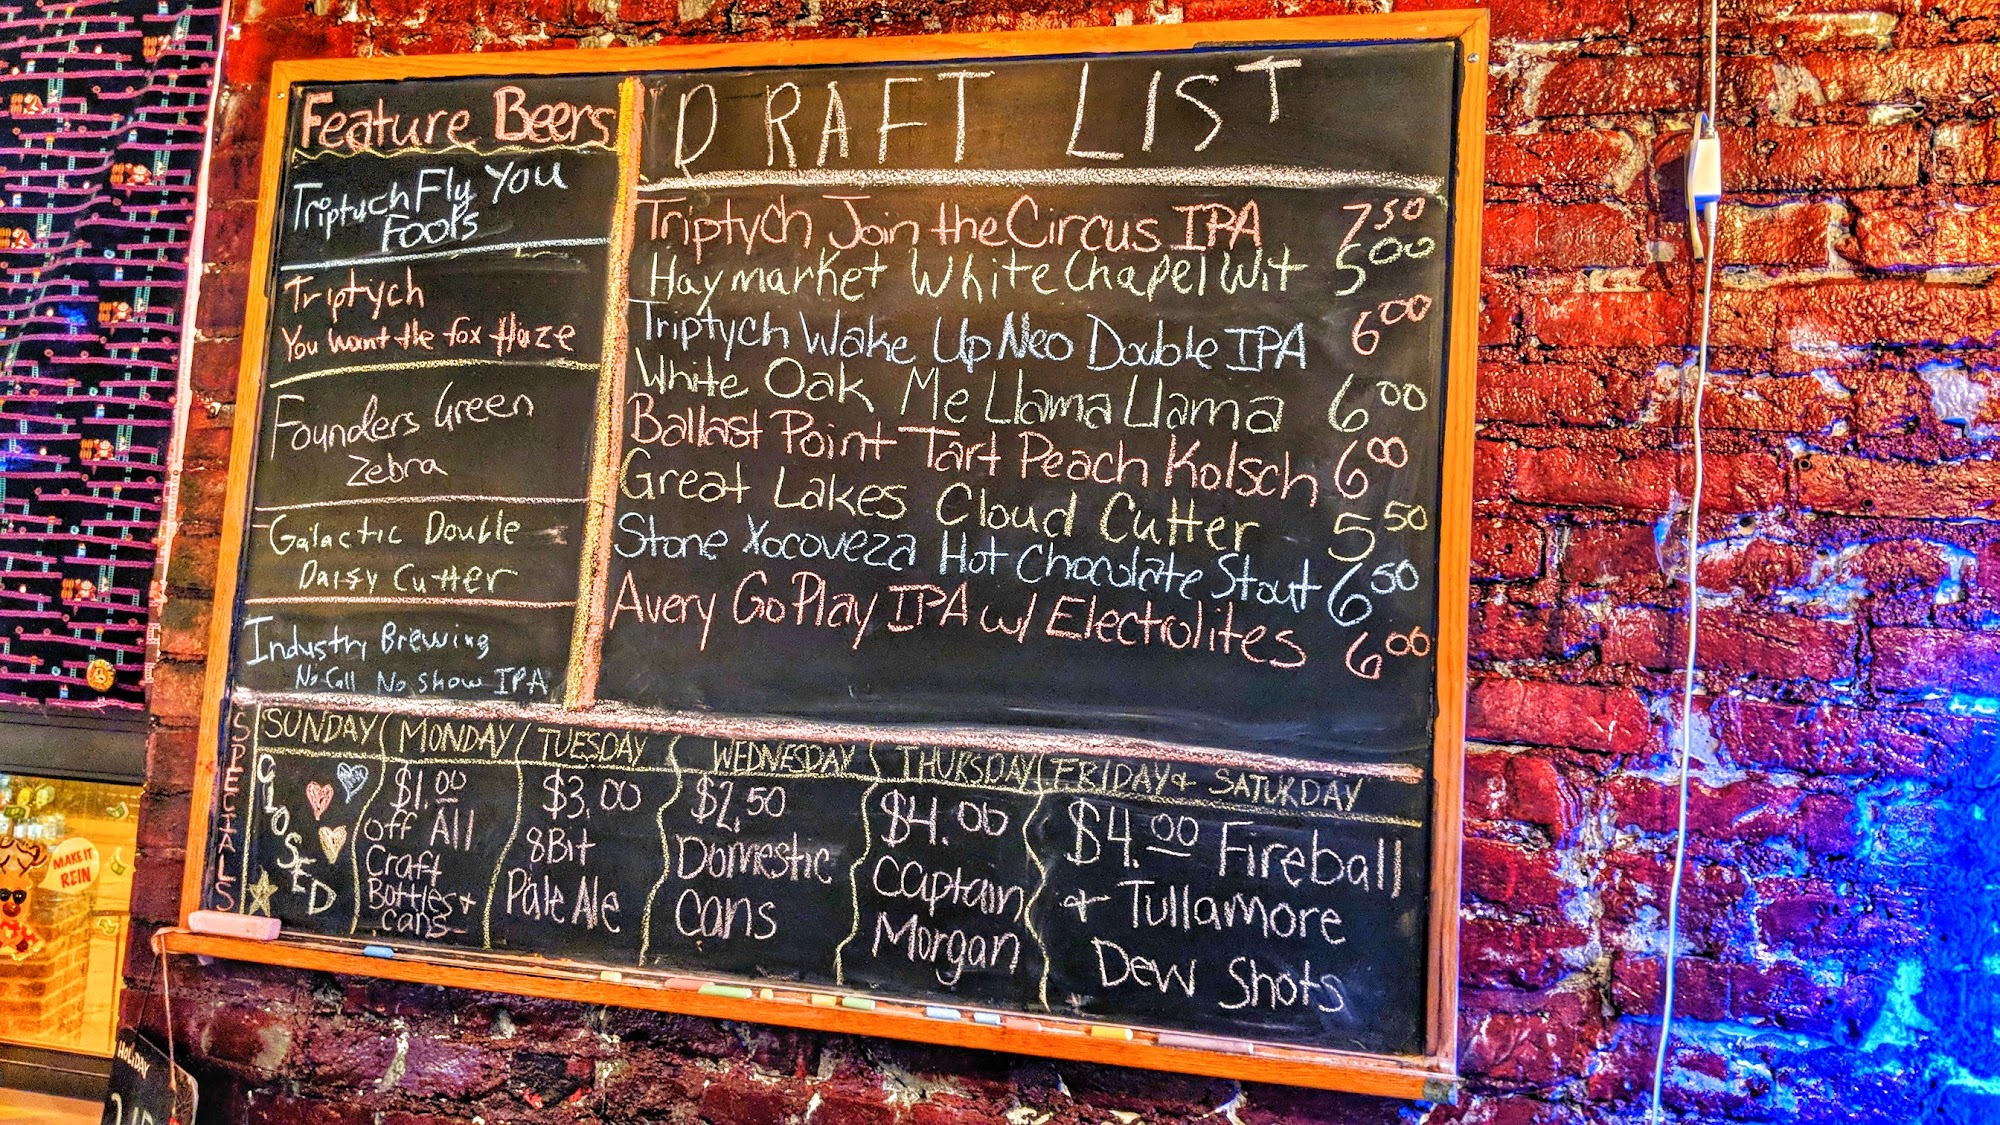 Feature Beers
Triptych Fly You
Fools
Triptych
You want the fox Haze
Founders Green
Zebra
Galactic Double
Daisy Cutter
Industry Brewing
No Call No Show IPA
DRAFT LIST
Triptych Join the Circus IPA 7.50
Haymarket White Chapel Wit 5.00
Triptych Wake Up Neo Double IPA 6.00
White Oak Me Llama Llama 6.00
Ballast Point Tart Peach Kolsch 6.00
Great Lakes Cloud Cutter 5.50
Stone Xocoveza Hot Chocolate Stout 6.50
Avery Go Play IPA w/ Electrolites 6.00
SPECIALS
SUNDAY
CLOSED
MONDAY
$1.00
off All
Craft
Bottles +
cans
TUESDAY
$3.00
8Bit
Pale Ale
WEDNESDAY
$2.50
Domestic
Cans
THURSDAY
$4.00
Captain
Morgan
FRIDAY + SATURDAY
$4.00 Fireball
+ Tullamore
Dew Shots
MAKE IT
REIN
HOLIDAY